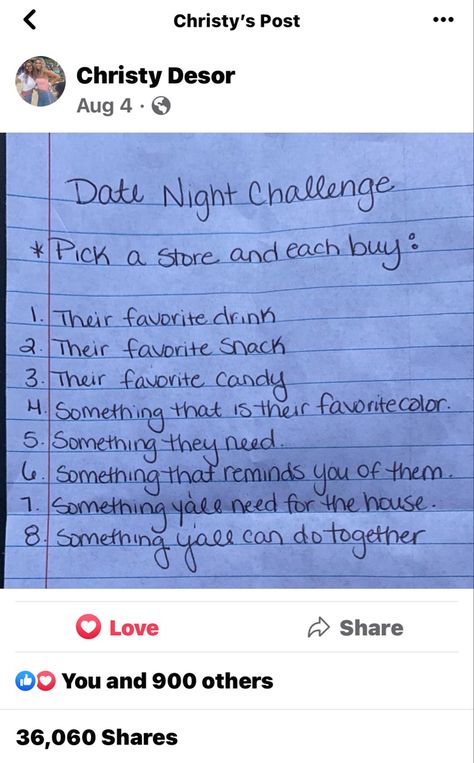 Christy's Post
Christy Desor
Aug 4 ·
Date Night Challenge
* Pick a store and each buy:
1. Their favorite drink
2. Their favorite snack
3. Their favorite candy
4. Something that is their favorite color.
5. Something they need.
6. Something that reminds you of them.
7. Something yall need for the house.
8. Something y'all can do together
Love
Share
You and 900 others
36,060 Shares